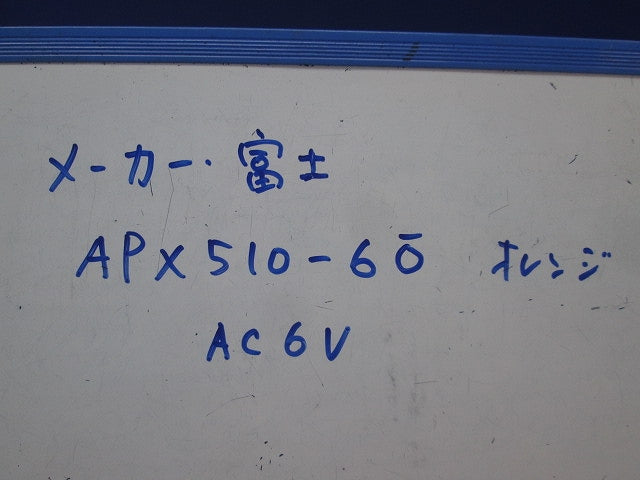 メーカー・富士
APX510-6Ō オレンジ
AC6V